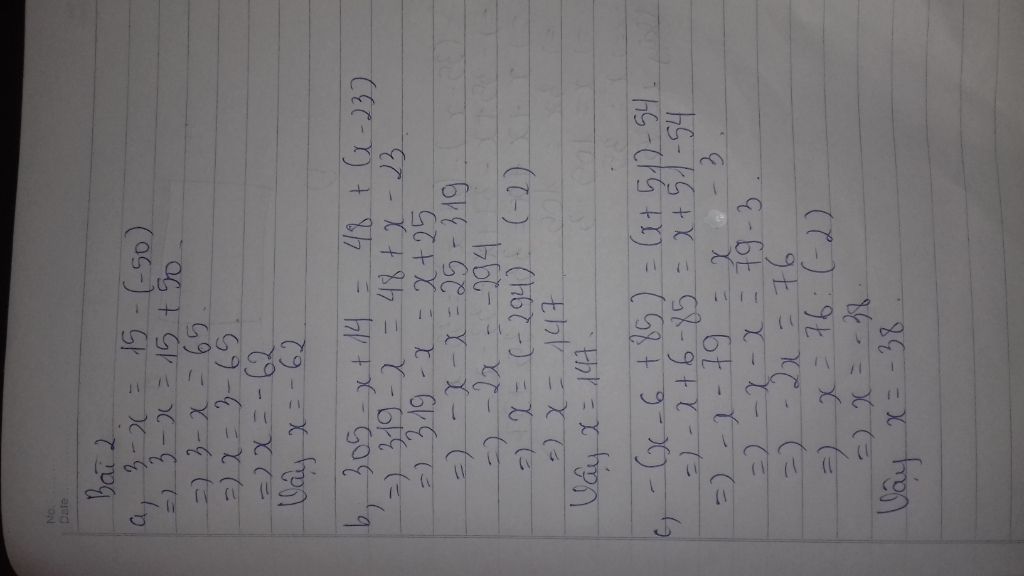 No.
Date
Bài 2
a, 3 - x = 15 - (-50)
=) 3 - x = 15 + 50.
=) 3 - x = 65.
=) x = 3 - 65.
=) x = -62
Vậy x = -62
b, 305 - x + 14 = 48 + (x - 23)
=) 319 - x = 48 + x - 23
=) 319 - x = x + 25
=) -x - x = 25 - 319
=) -2x = -294
=) x = (-294) : (-2)
=) x = 147
Vậy x = 147.
c, -(x - 6 + 85) = (x + 51) - 54.
=) -x + 6 - 85 = x + 51 - 54
=) -x - 79 = x - 3.
=) -x - x = 79 - 3.
=) -2x = 76
=) x = 76 : (-2)
=) x = -38.
Vậy x = -38.